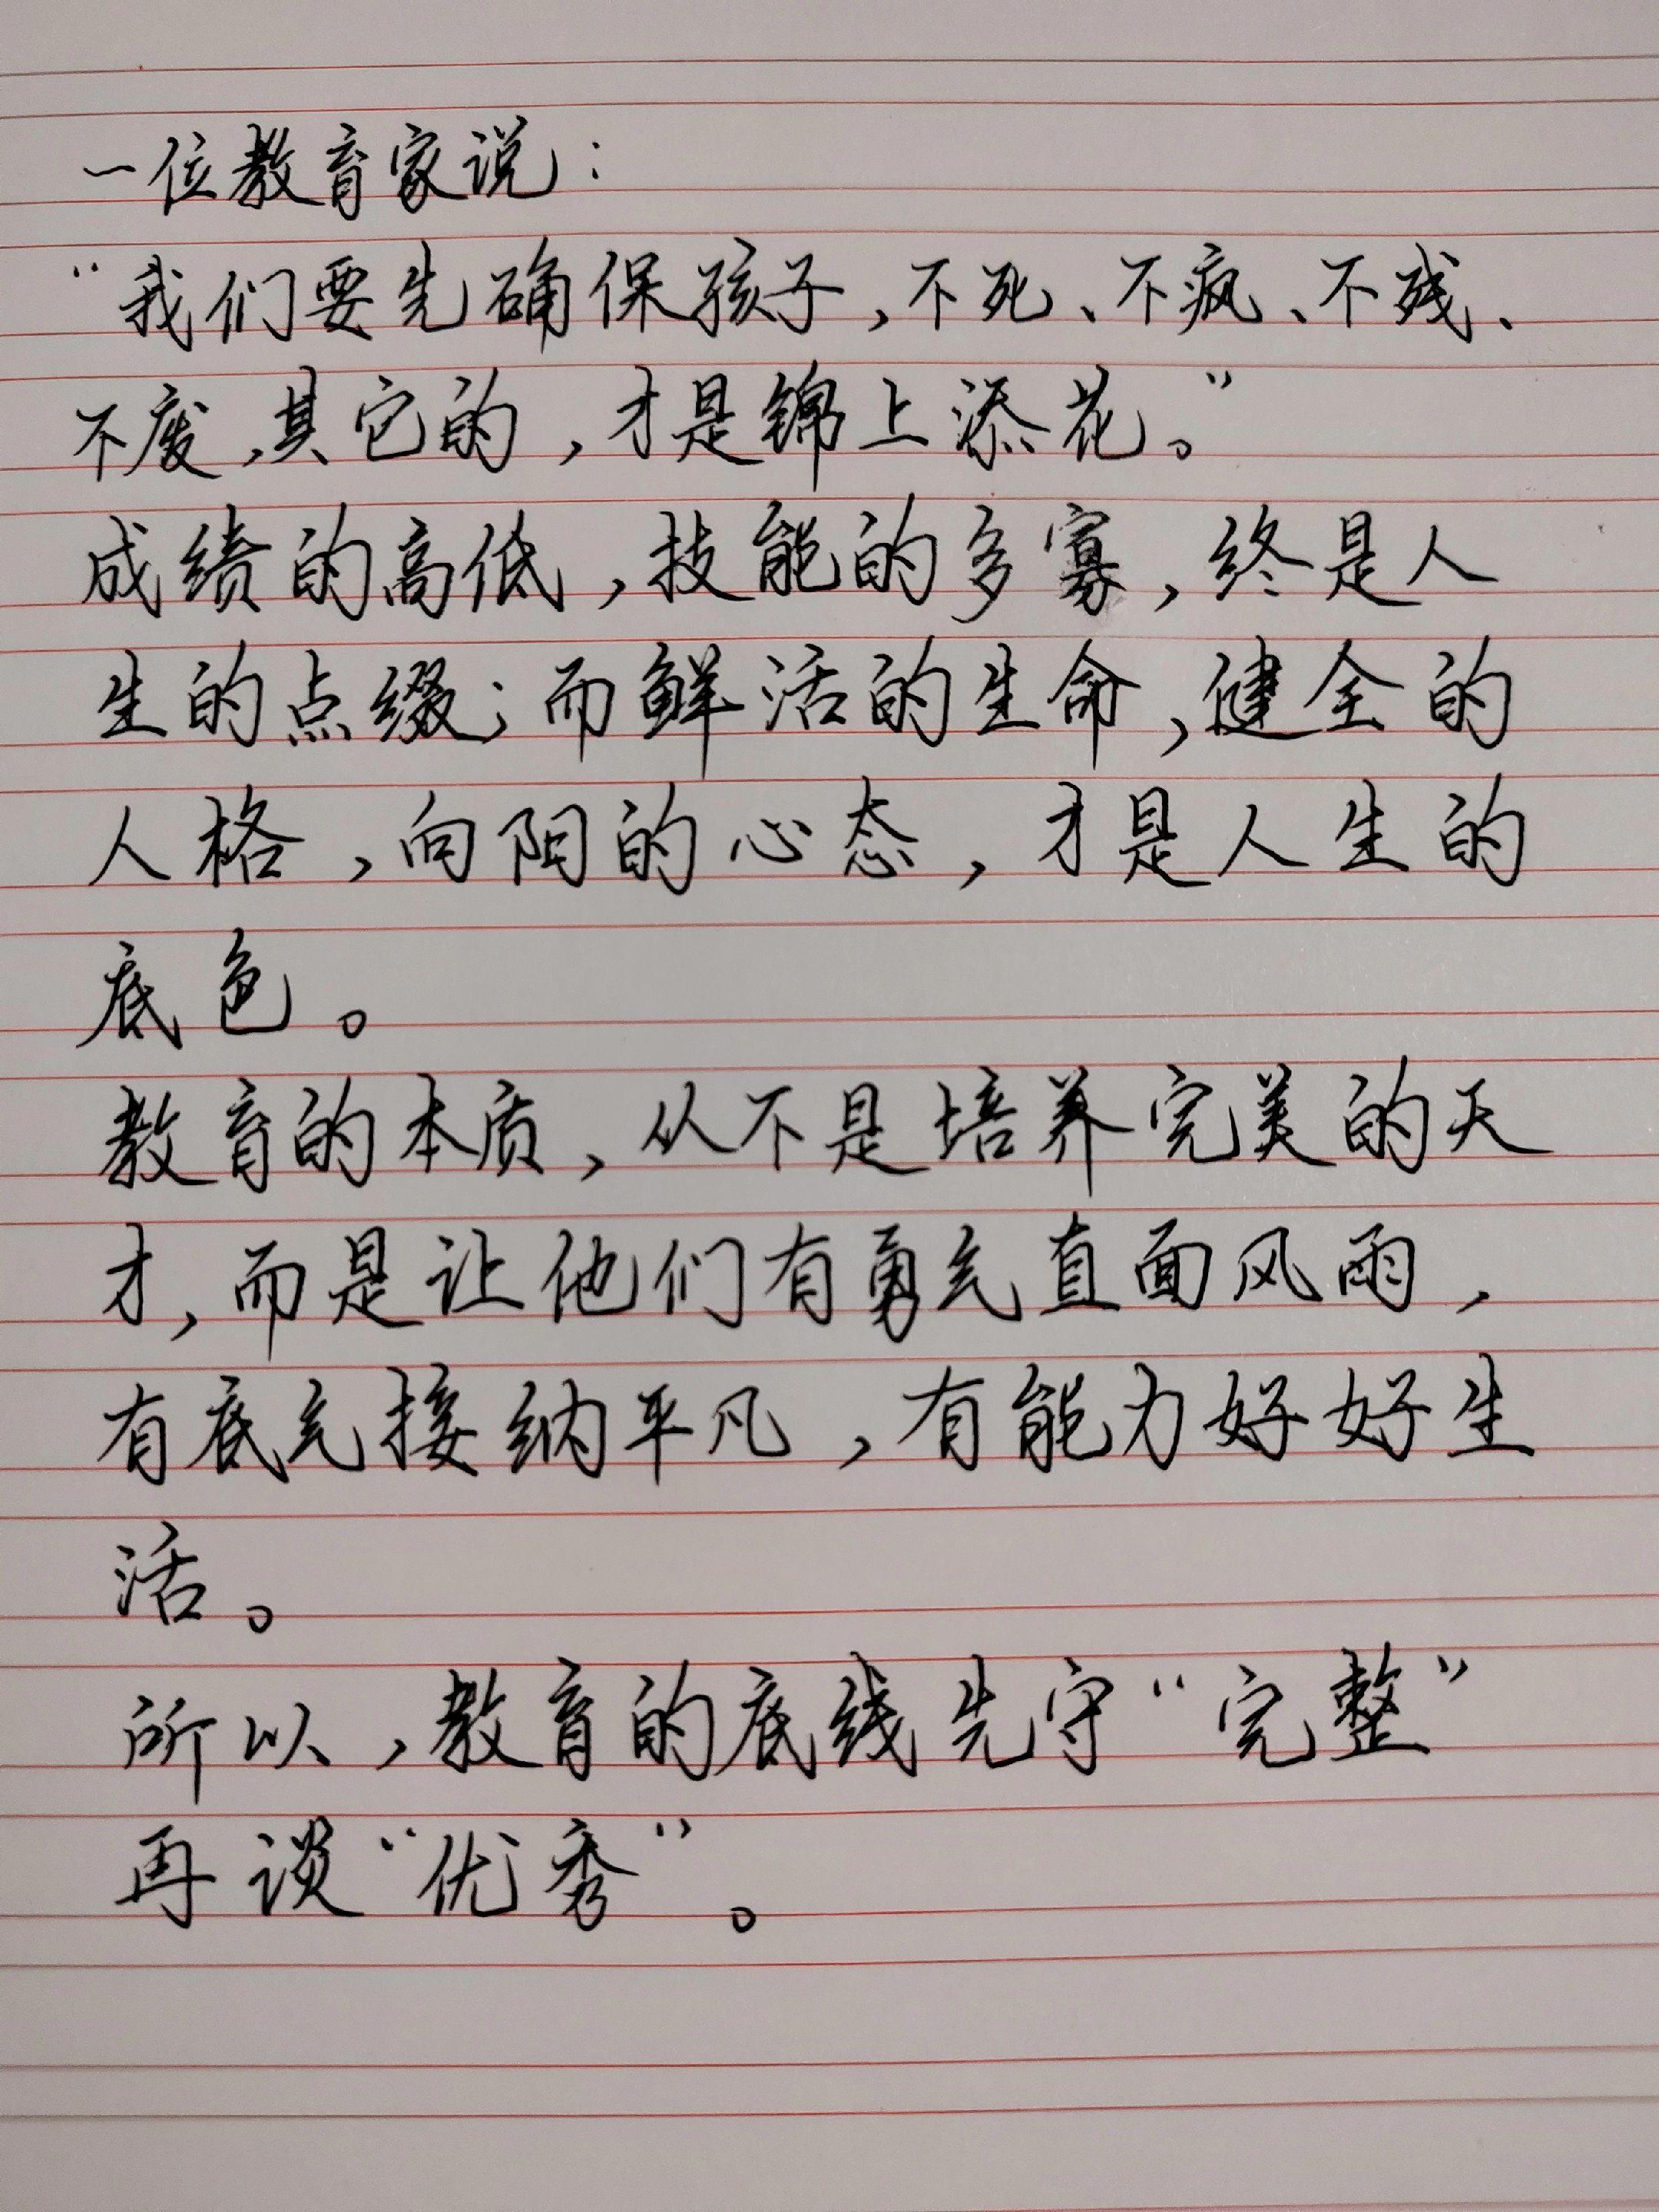 一位教育家说：
“我们要先确保孩子，不死、不疯、不残、
不废，其它的，才是锦上添花。”
成绩的高低，技能的多寡，终是人
生的点缀；而鲜活的生命，健全的
人格，向阳的心态，才是人生的
底色。
教育的本质，从不是培养完美的天
才，而是让他们有勇气直面风雨，
有底气接纳平凡，有能力好好生
活。
所以，教育的底线先守“完整”
再谈“优秀”。